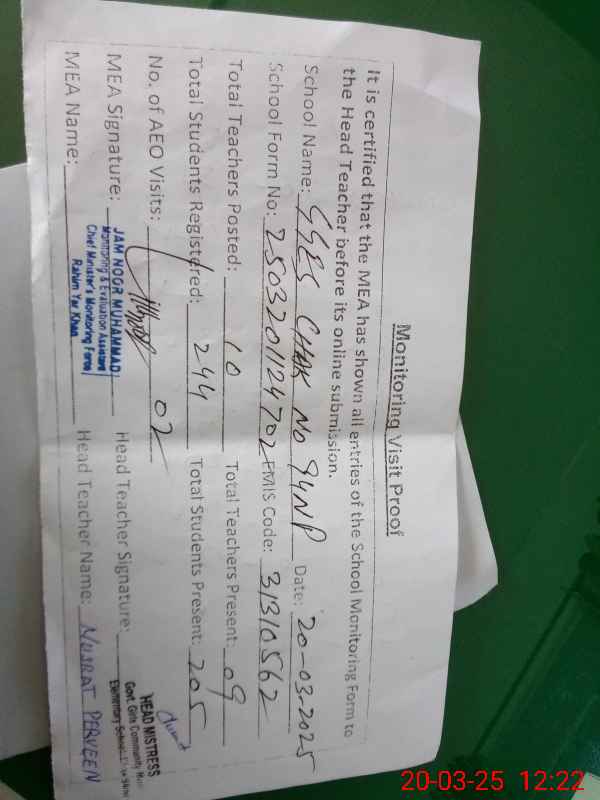 Monitoring Visit Proof
It is certified that the MEA has shown all entries of the School Monitoring Form to
the Head Teacher before its online submission.
School Name: GGES CHAK NO 94NP Date: 20-03-2025
School Form No: 2503201124702 EMIS Code: 31310562
Total Teachers Posted: 10 Total Teachers Present: 09
Total Students Registered: 244 Total Students Present: 205
No. of AEO Visits: 02
MEA Signature: Head Teacher Signature:
JAM NOOR MUHAMMAD
Monitoring & Evaluation Assistant
Chief Minister's Monitoring Force
Rahim Yar Khan
HEAD MISTRESS
Govt. Girls Community
Elementary School
MEA Name: Head Teacher Name: NUSRAT PERVEEN
20-03-25 12:22